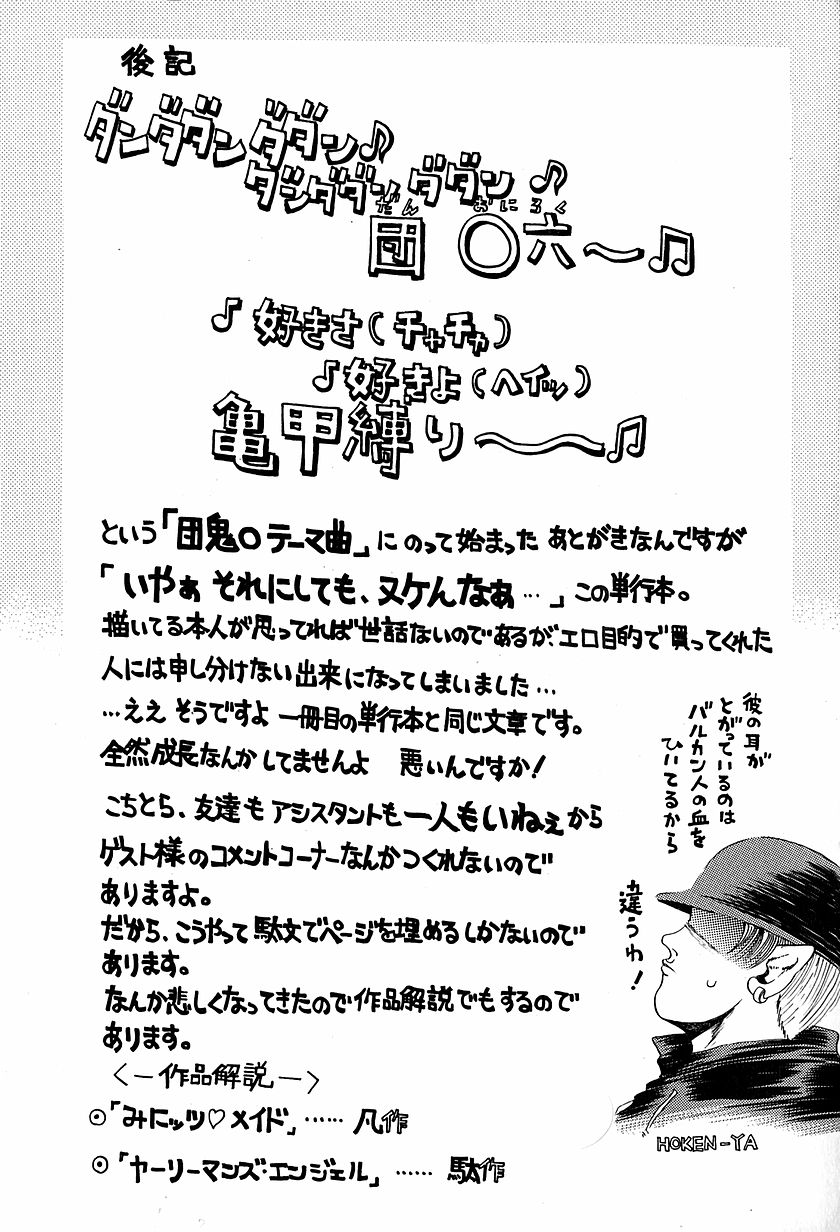 後記
ダンダダンダダン♪
ダンダダンダダン♪
だん おにろく
団〇六～♫
♪好きさ（チャチャ）
♪好きよ（ヘイッ）
亀甲縛り～～♫
という「団鬼〇テーマ曲」にのって始まったあとがきなんですが
「いやぁ それにしても、ヌケんなぁ…」この単行本。
描いてる本人が思ってれば世話ないのであるが、エロ目的で買ってくれた
人には申し分けない出来になってしまいました…
…ええ そうですよ 一冊目の単行本と同じ文章です。
全然成長なんかしてませんよ 悪いんですか！
こちとら、友達もアシスタントも一人もいねぇから
ゲスト様のコメントコーナーなんかつくれないので
ありますよ。
だから、こうやって駄文でページを埋めるしかないので
あります。
なんか悲しくなってきたので作品解説でもするので
あります。
＜－作品解説－＞
◉「みにッツ♡メイド」……凡作
◉「ヤーリーマンズ・エンジェル」……駄作
彼の耳が
とがっているのは
バルカン人の血を
ひいてるから
違うわ！
HOKEN-YA